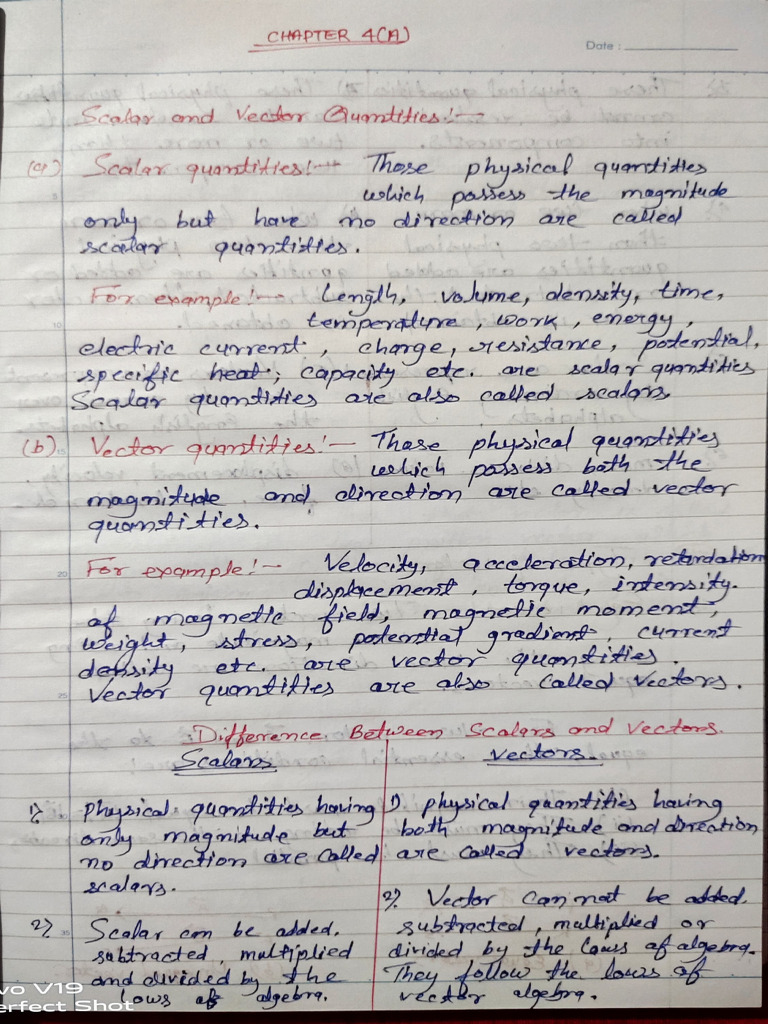 CHAPTER 4(A)
Date :
Scalar and Vector Quantities:-
(a) Scalar quantities:- Those physical quantities
which possess the magnitude
only but have no direction are called
scalar quantities.
For example:- Length, volume, density, time,
temperature, work, energy,
electric current, charge, resistance, potential,
specific heat; capacity etc. are scalar quantities
Scalar quantities are also called scalars.
(b) Vector quantities:- Those physical quantities
which possess both the
magnitude and direction are called vector
quantities.
For example:- Velocity, acceleration, retardation
displacement, torque, intensity.
of magnetic field, magnetic moment,
weight, stress, potential gradient, current
density etc. are vector quantities.
Vector quantities are also called Vectors.
Difference Between Scalars and Vectors.
Scalars
Vectors.
1) Physical quantities having
only magnitude but
no direction are called
scalars.
2) Scalar can be added,
subtracted, multiplied
and divided by the
laws of algebra.
1). physical quantities having
both magnitude and direction
are called vectors.
2) Vector can not be added,
subtracted, multiplied or
divided by the laws of algebra.
They follow the laws of
vector algebra.
vo V19
erfect Shot